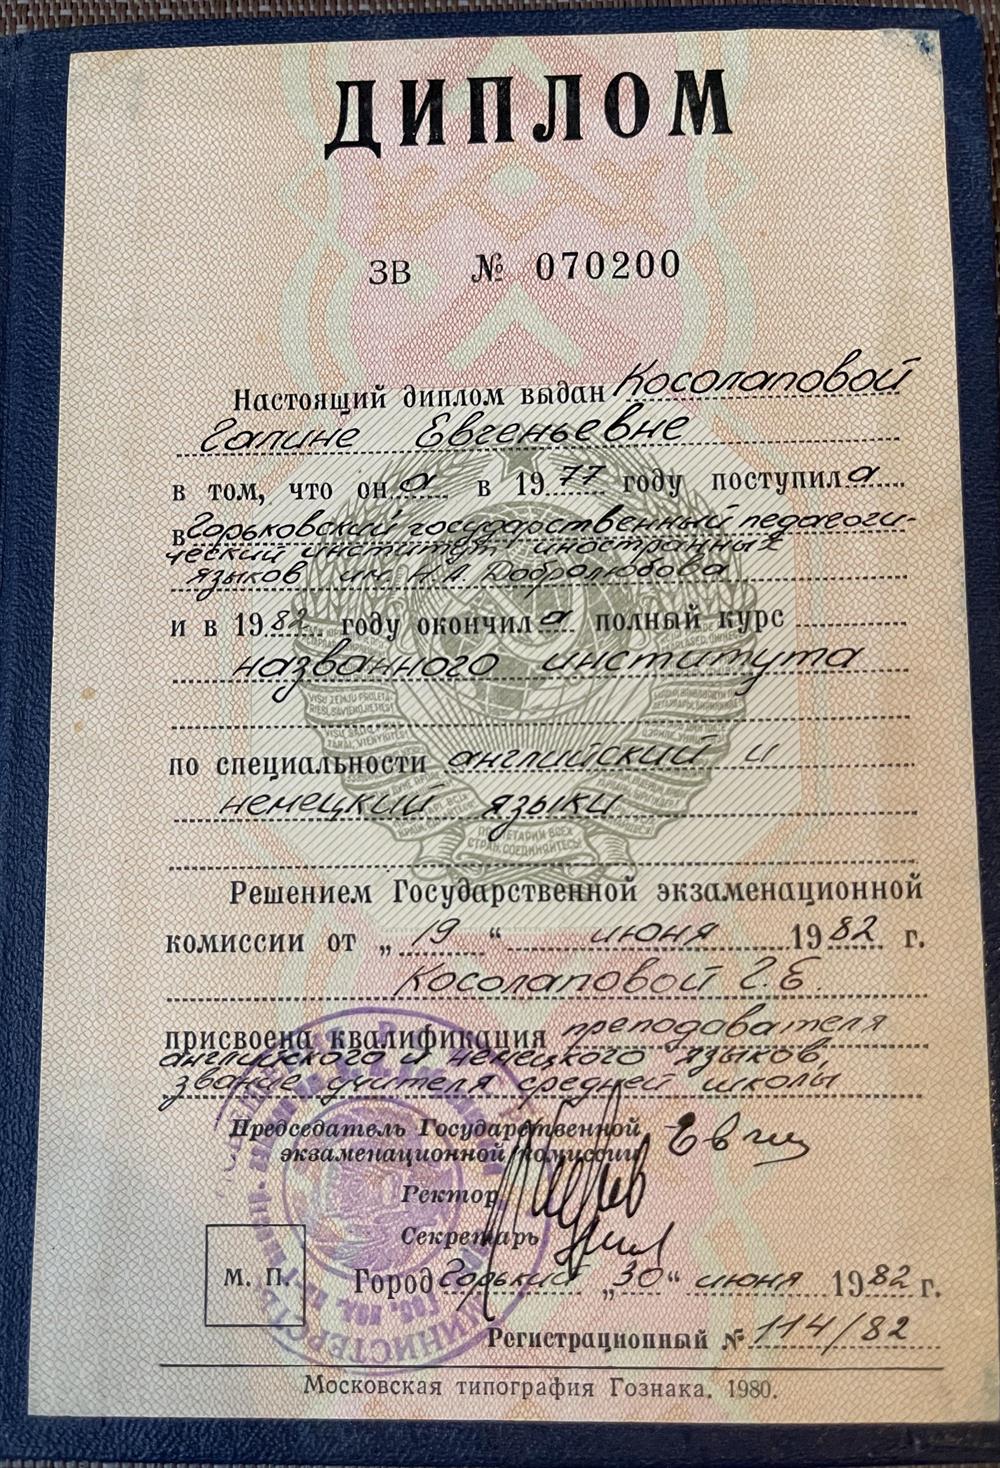 ДИПЛОМ
ЗВ № 070200
Настоящий диплом выдан Косолаповой
Галине Евгеньевне
в том, что она в 1977 году поступила
в Горьковский государственный педагоги-
ческий институт иностранных
языков им. Н.А. Добролюбова
и в 1982 году окончила полный курс
названного института
по специальности английский и
немецкий языки
Решением Государственной экзаменационной
комиссии от „19“ июня 1982 г.
Косолаповой Г.Е.
присвоена квалификация преподавателя
английского и немецкого языков,
звание учителя средней школы
Председатель Государственной
экзаменационной комиссии
Ректор
Секретарь
М. П.
Город Горький „30“ июня 1982 г.
Регистрационный № 114/82
Московская типография Гознака. 1980.